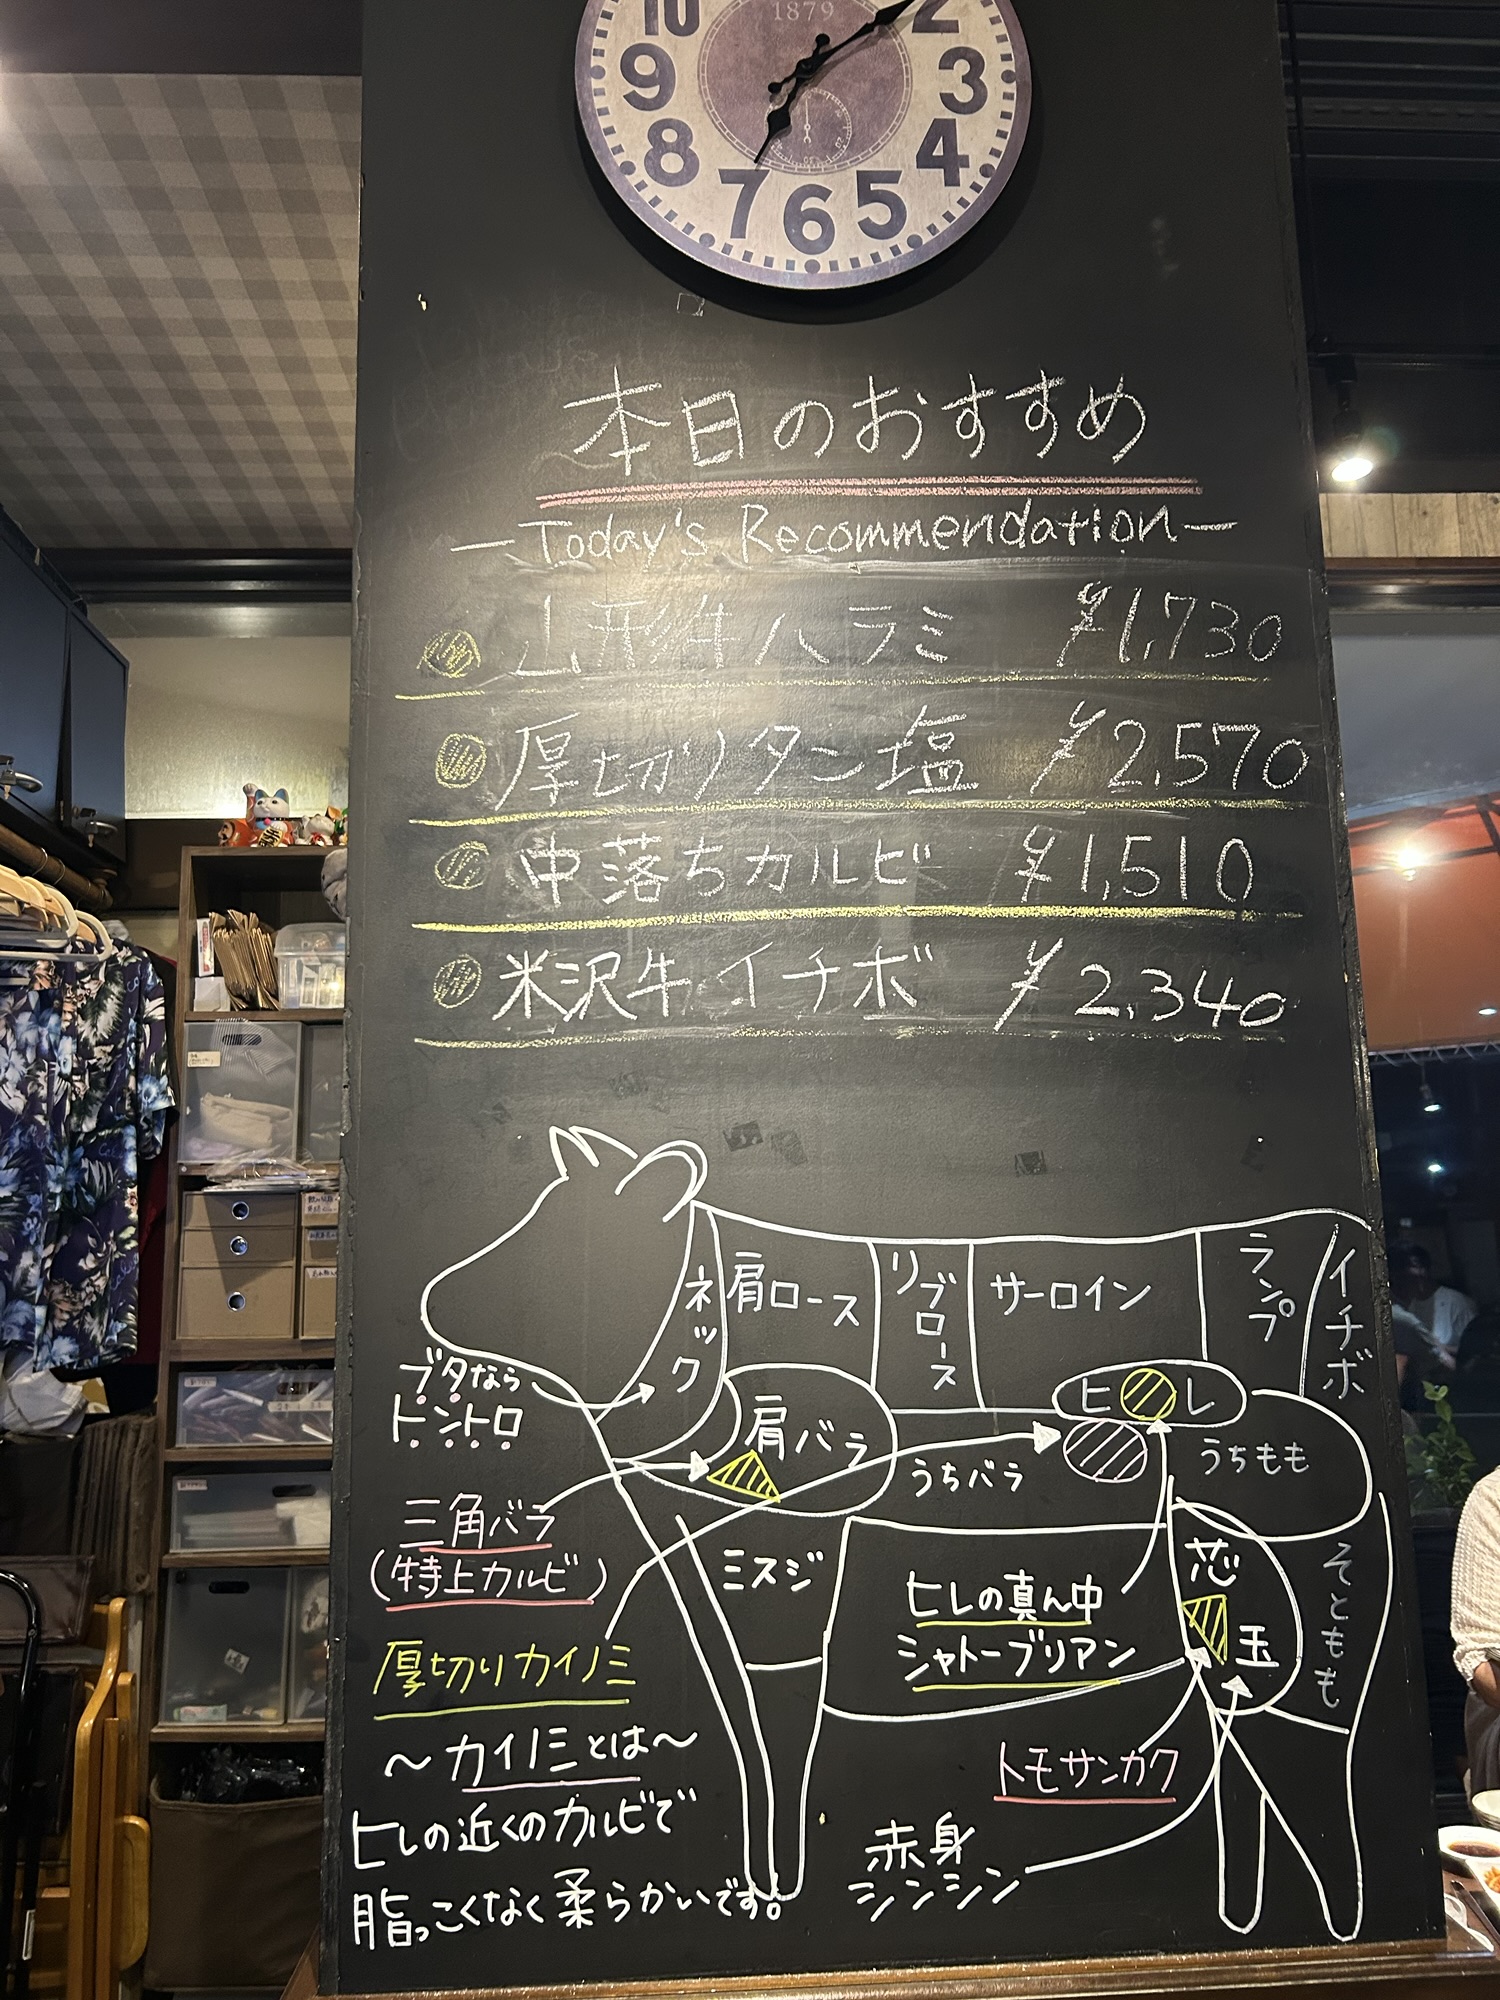 1879
10 2
9 3
8 4
7 6 5
本日のおすすめ
—Today's Recommendation—
山形牛ハラミ ¥1,730
厚切りタン塩 ¥2,570
中落ちカルビ ¥1,510
米沢牛イチボ ¥2,340
ネック
肩ロース
リブロース
サーロイン
ランプ
イチボ
ブタなら
トントロ
肩バラ
うちバラ
ヒレ
うちもも
三角バラ
(特上カルビ)
ミスジ
ヒレの真ん中
シャトーブリアン
芯玉
そともも
厚切りカイノミ
〜カイノミとは〜
ヒレの近くのカルビで
脂っこくなく柔らかいです。
トモサンカク
赤身
シンシン